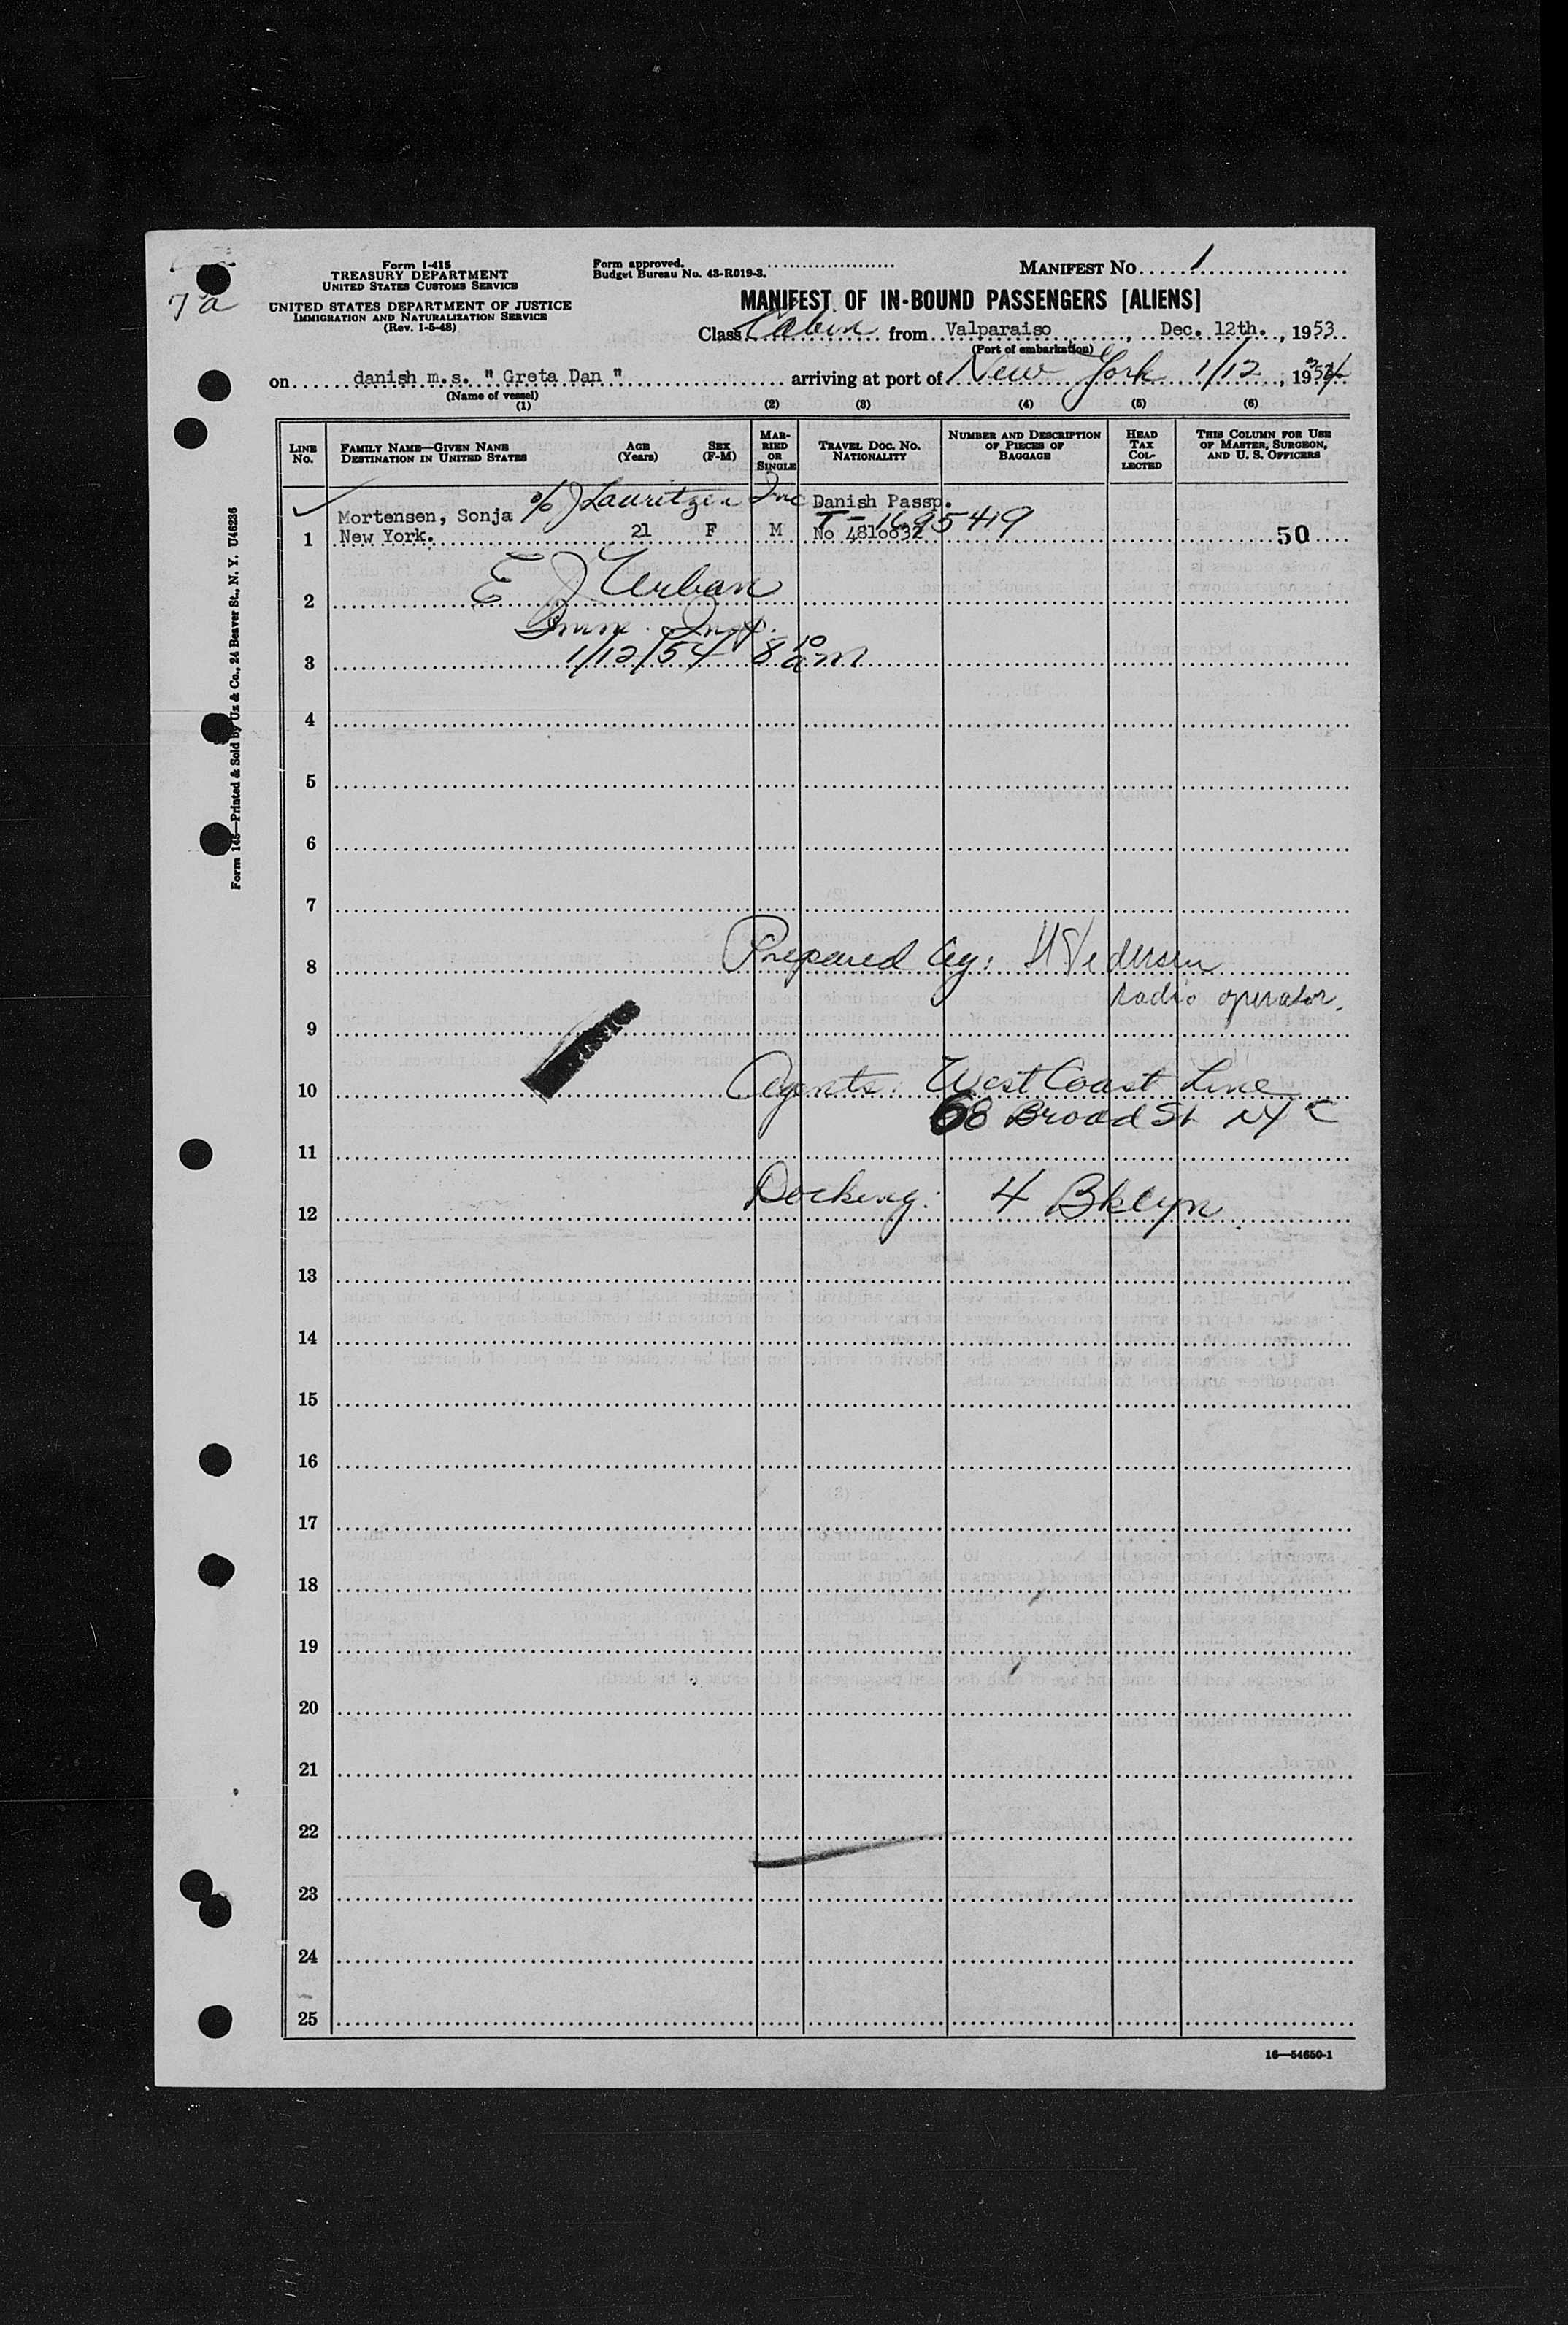 7 a
Form I-415
TREASURY DEPARTMENT
UNITED STATES CUSTOMS SERVICE
UNITED STATES DEPARTMENT OF JUSTICE
IMMIGRATION AND NATURALIZATION SERVICE
(Rev. 1-5-48)
Form approved.
Budget Bureau No. 43-R019-3.
MANIFEST NO. 1
MANIFEST OF IN-BOUND PASSENGERS [ALIENS]
Class Cabin from Valparaiso, Dec. 12th., 1953
(Port of embarkation)
on danish m.s. " Greta Dan " arriving at port of New York 1/12, 1954
(Name of vessel)
(1) (2) (3) (4) (5) (6)
LINE NO.
FAMILY NAME—GIVEN NAME
DESTINATION IN UNITED STATES
AGE (Years)
SEX (F-M)
MARRIED OR SINGLE
TRAVEL DOC. NO. NATIONALITY
NUMBER AND DESCRIPTION OF PIECES OF BAGGAGE
HEAD TAX COLLECTED
THIS COLUMN FOR USE OF MASTER, SURGEON, AND U. S. OFFICERS
c/o J Lauritzen Inc Danish Passp.
Mortensen, Sonja T-1695419
1 New York. 21 F M No 4810032 50
E J Urban
2
Imm. Insp.
3 1/12/54 8 10 am
4
5
6
7
8 Prepared by: Pedersen
radio operator.
9
10 Agents: West Coast Line
68 Broad St NYC
11
12 Docking: 4 Bklyn.
13
14
15
16
17
18
19
20
21
22
23
24
25
16—54650-1
Form 145—Printed & Sold by Uz & Co., 24 Beaver St., N. Y. U46236